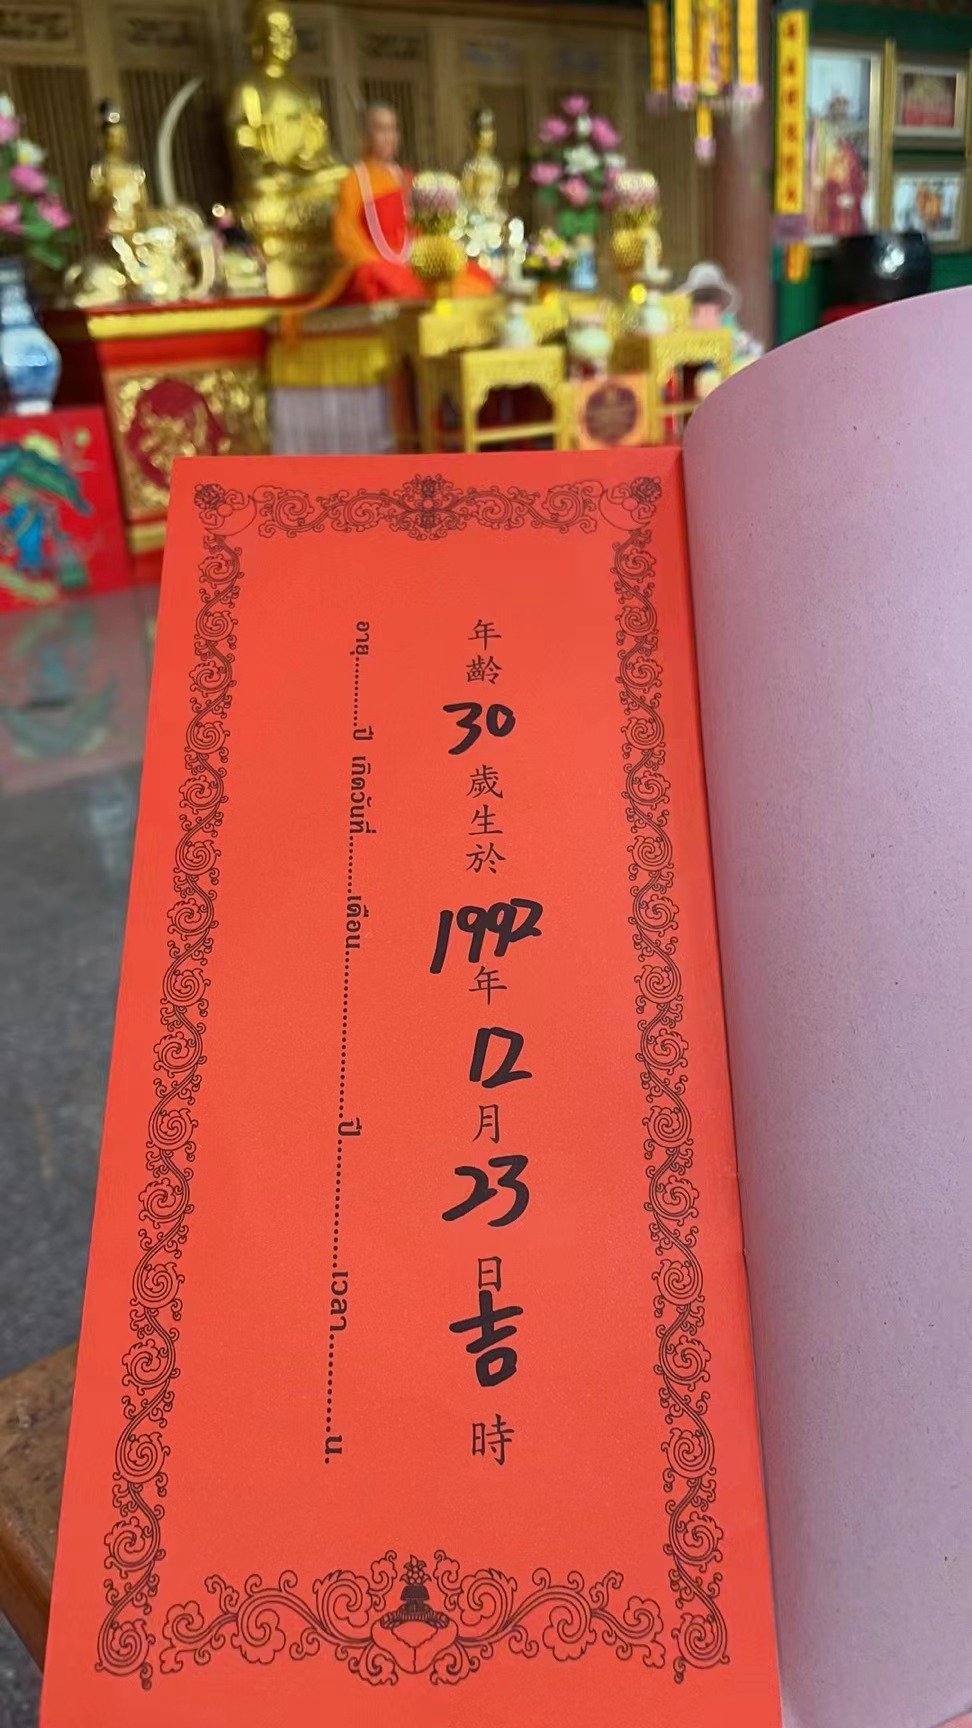 年齡30歲生於1992年12月23日吉時
อายุ..........ปี เกิดวันที่..........เดือน..............................ปี......................เวลา..............น.